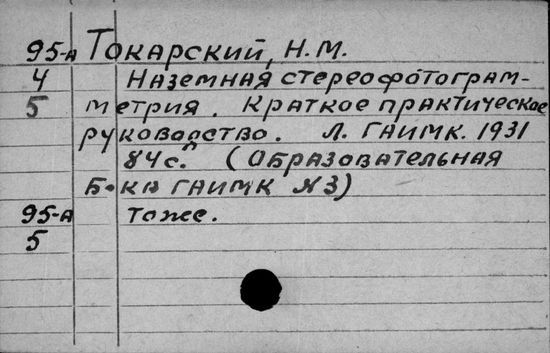 95-А Токарский, Н.М.
4 Наземная стереофотограм-
5 метрия. Краткое практическое
руководство. Л. ГАИМК. 1931
84с. (Образовательная
Б-ка ГАИМК №3)
95-А тоже.
5